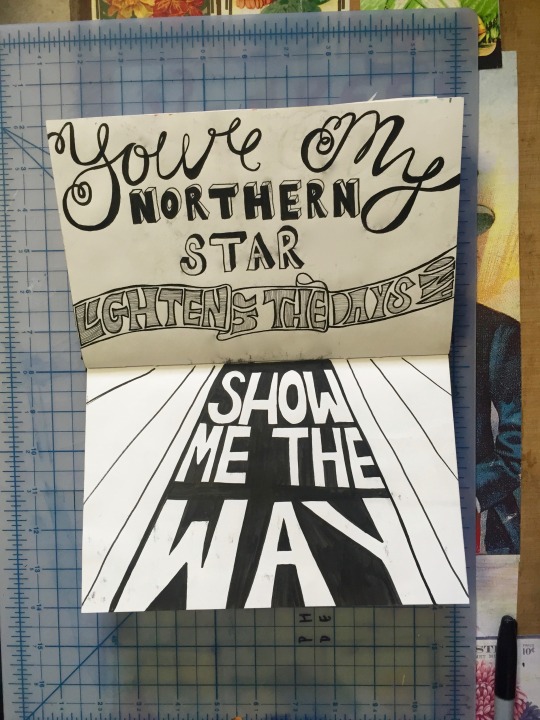 You're My
NORTHERN
STAR
LIGHTENS THE DAYS
SHOW
ME THE
WAY